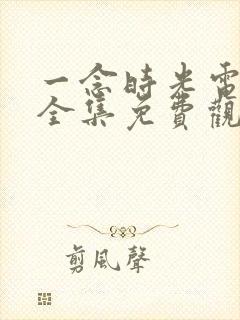 一念時光電
全集免費觀
剪風聲